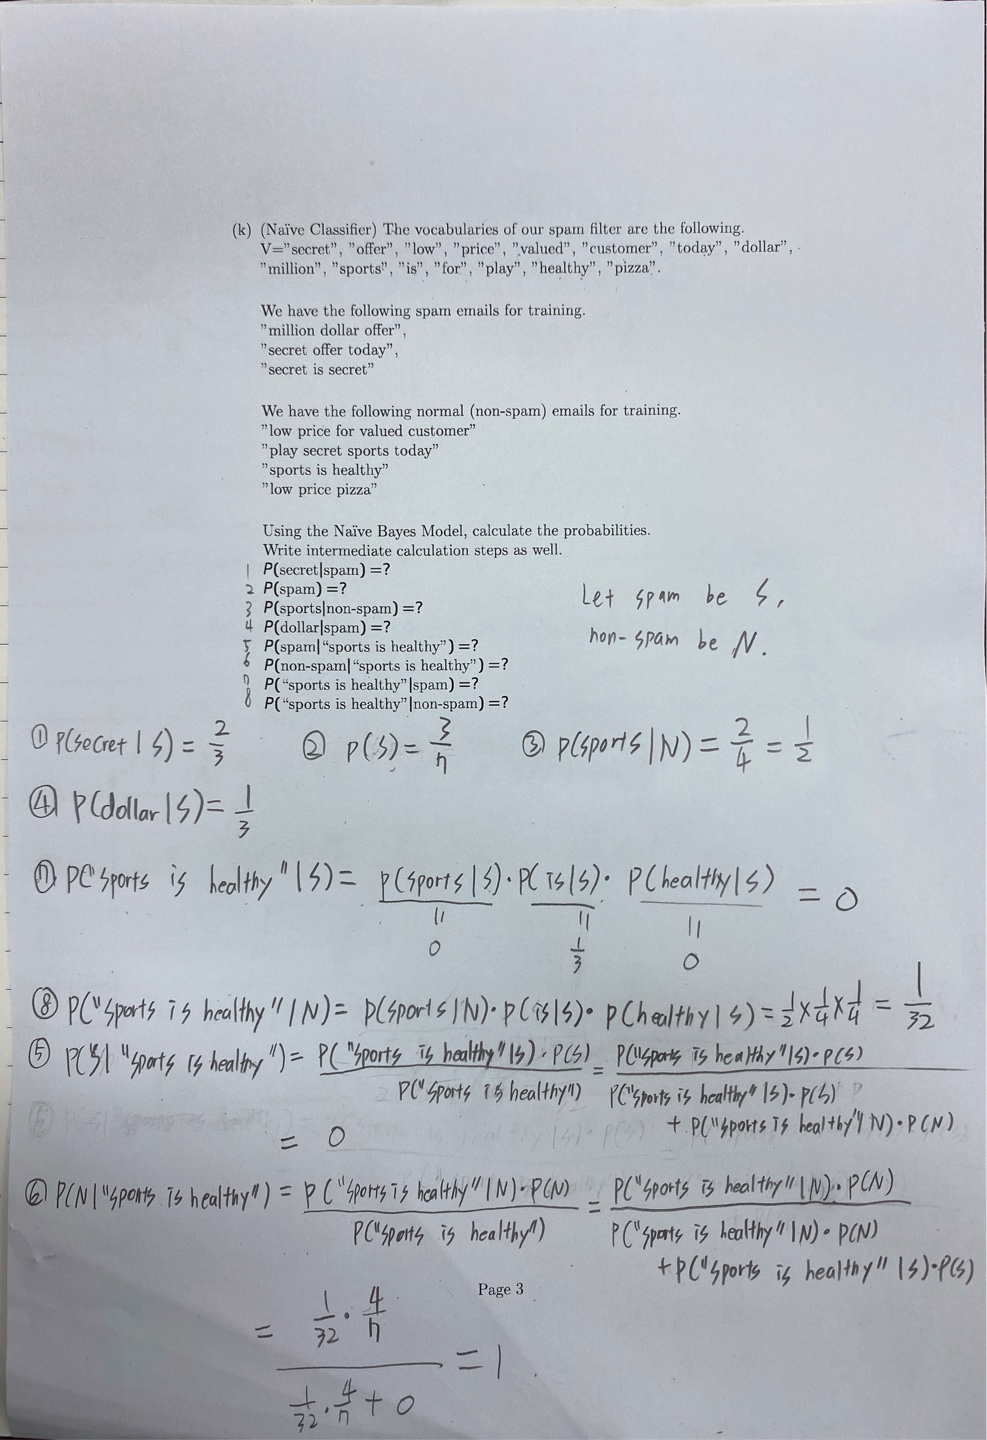 (k) (Naïve Classifier) The vocabularies of our spam filter are the following.
V="secret", "offer", "low", "price", "valued", "customer", "today", "dollar",
"million", "sports", "is", "for", "play", "healthy", "pizza".
We have the following spam emails for training.
"million dollar offer",
"secret offer today",
"secret is secret"
We have the following normal (non-spam) emails for training.
"low price for valued customer"
"play secret sports today"
"sports is healthy"
"low price pizza"
Using the Naïve Bayes Model, calculate the probabilities.
Write intermediate calculation steps as well.
1 P(secret|spam) =?
2 P(spam) =?
3 P(sports|non-spam) =?
4 P(dollar|spam) =?
5 P(spam|"sports is healthy") =?
6 P(non-spam|"sports is healthy") =?
7 P("sports is healthy"|spam) =?
8 P("sports is healthy"|non-spam) =?
Let spam be S,
non-spam be N.
① P(secret | S) = 2/3 ② P(S) = 3/7 ③ P(sports | N) = 2/4 = 1/2
④ P(dollar | S) = 1/3
⑦ P("sports is healthy" | S) = P(sports | S) · P(is | S) · P(healthy | S) = 0
= = =
0 1/3 0
⑧ P("sports is healthy" | N) = P(sports | N) · P(is | S) · P(healthy | S) = 1/2 × 1/4 × 1/4 = 1/32
⑤ P(S | "sports is healthy") = P("sports is healthy" | S) · P(S) / P("sports is healthy") = P("sports is healthy" | S) · P(S) / P("sports is healthy" | S) · P(S)
+ P("sports is healthy" | N) · P(N)
= 0
⑥ P(N | "sports is healthy") = P("sports is healthy" | N) · P(N) / P("sports is healthy") = P("sports is healthy" | N) · P(N) / P("sports is healthy" | N) · P(N)
+ P("sports is healthy" | S) · P(S)
Page 3
= 1/32 · 4/7 / 1/32 · 4/7 + 0 = 1